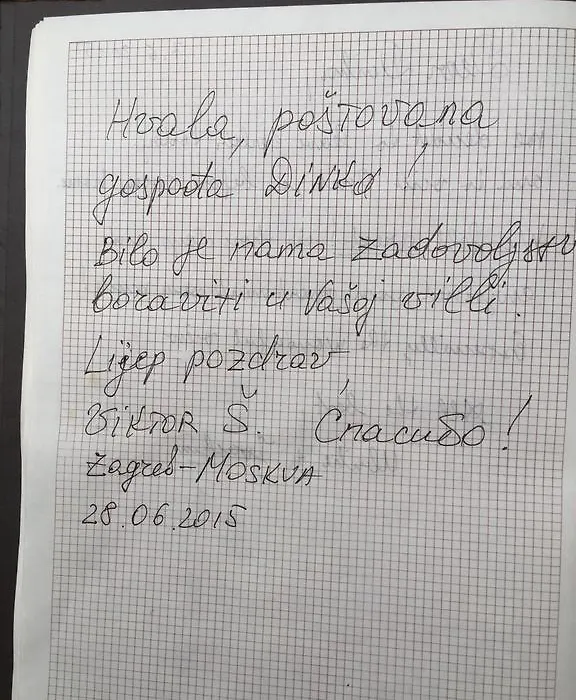 Hvala, poštovana
gospođa DiNKA!
Bilo je nama zadovoljstv
boraviti u Vašoj villi.
Lijep pozdrav,
VIKTOR Š. Спасибо!
Zagreb-MOSKVA
28.06.2015